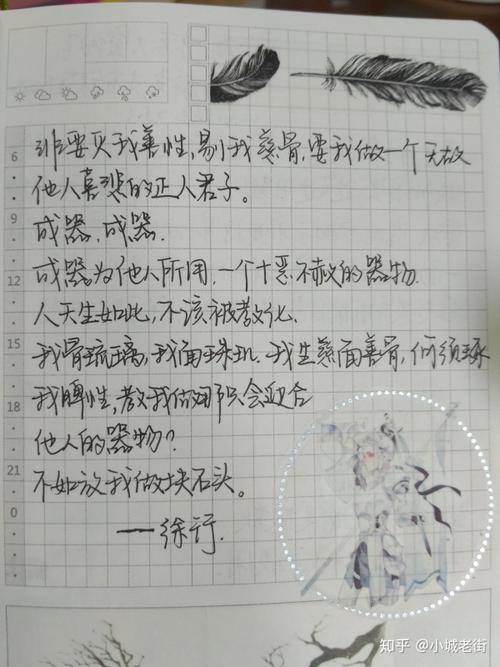 非要灭我善性,剔我慈骨,要我做一个无故
他人喜悲的正人君子。
成器,成器.
成器为他人所用,一个十恶不赦的器物.
人天生如此,不该被教化.
我骨琉璃,我面珠玑.我生慈面善骨,何须琢
我脾性,教我做那只会迎合
他人的器物?
不如放我做块石头。
——徐行.
6
9
12
15
18
21
0
知乎 @小城老街